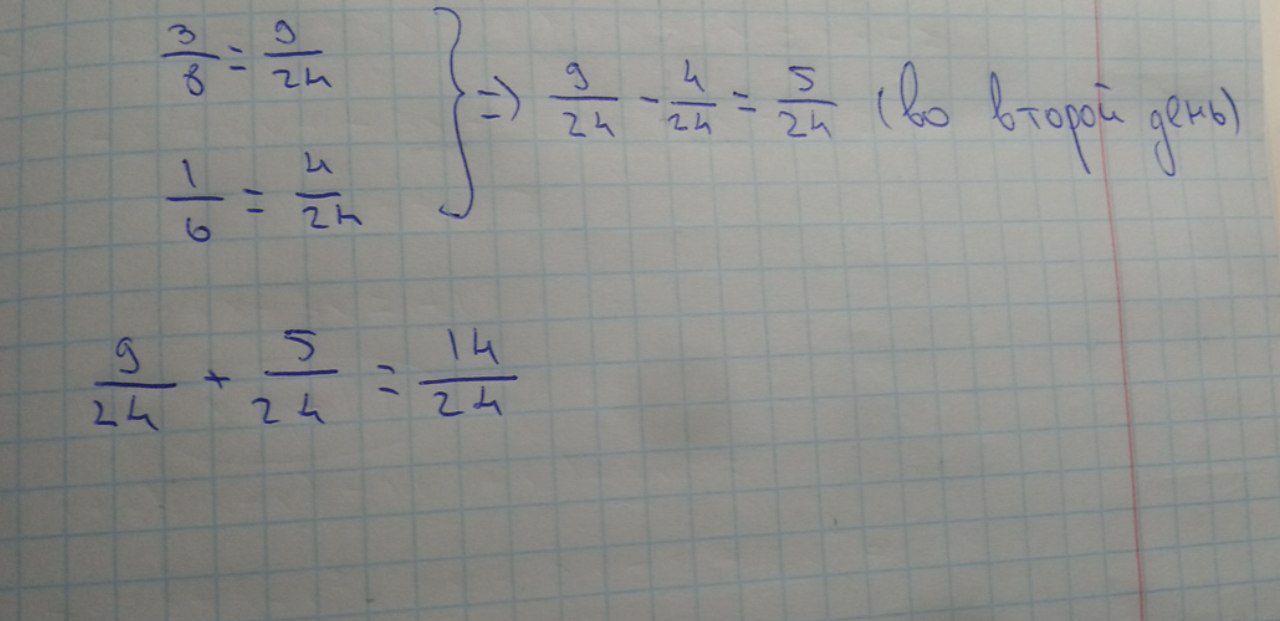 3/8 = 9/24
1/6 = 4/24
} => 9/24 - 4/24 = 5/24 (во второй день)
9/24 + 5/24 = 14/24